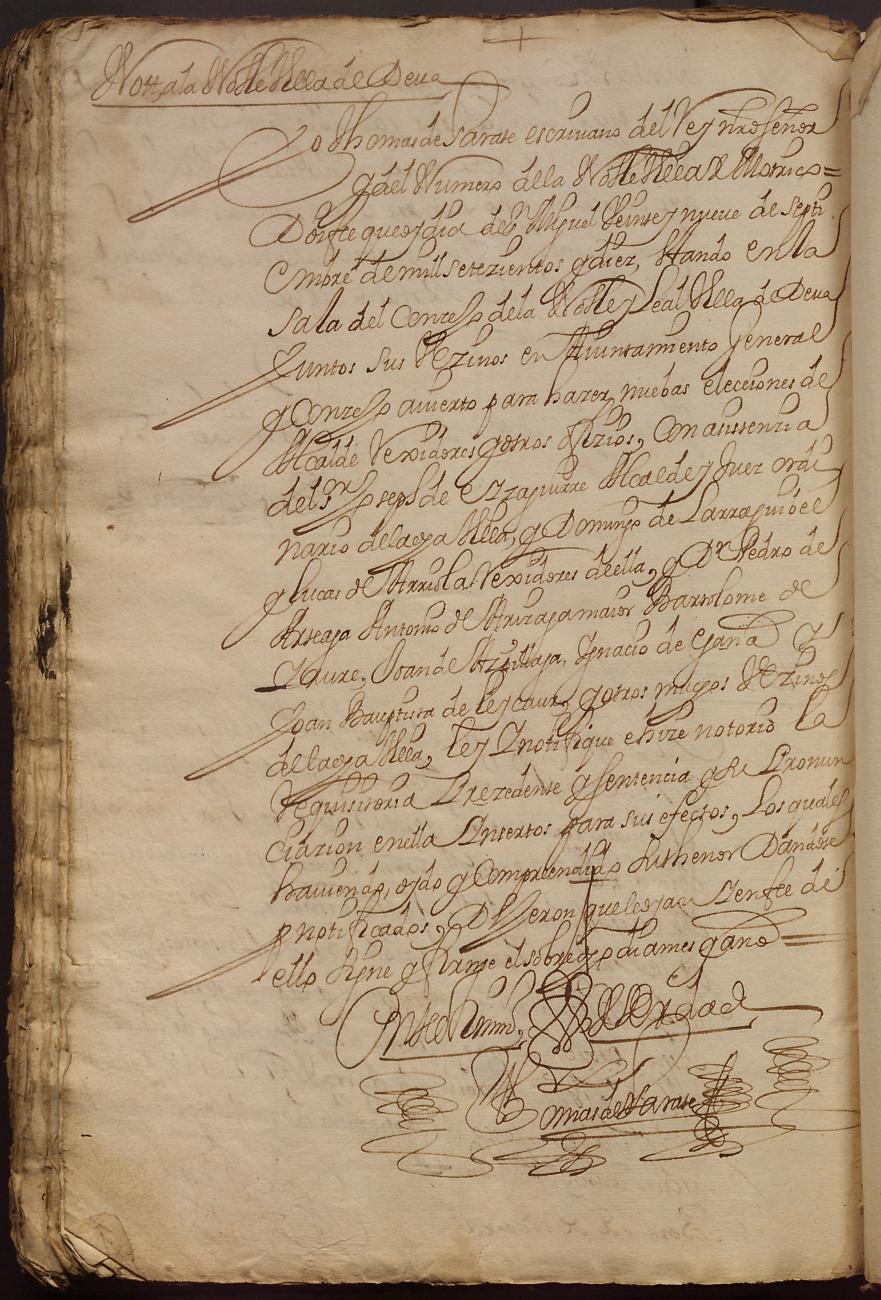 Nott. a la Noble Villa de Deva
Yo Thomas de Sarate escrivano del Rey nro señor
y del Numero della Noble Villa de Motrico =
Doi fee que oy dia de Sn Miguel Veinte y nueve de Septi
embre de mill setezientos y diez, stando en la
Sala del Conzejo de la Noble y Leal Villa de Deva
Juntos sus Vezinos en Aiuntamiento General
y Conzejo avierto para hazer nuebas elecciones de
Alcalde Rexidores y otros ofizios, con asistenzia
del Sr Joseph de Yzaguirre Alcalde y Juez ordi
nario de la dha Villa, y Domingo de Larraguibel
y Lucas de Arriola Rexidores de ella, y Dn Pedro de
Arteaga Antonio de Arizaga maior Bartolome de
Joan de Aizpillaga, Ygnacio de Egaña y
Joan Bauptista de Leycaur, y otros muchos Vezinos
de la dha Villa, ley Ynotifique e hize notorio la
Requisitoria Prezedente y sentencia y su Pronun
ciazion en ella Ynsertos para sus efectos, Los quales
haviendo, oydo y Comprendido su thenor Dandose
p notificados, Dijeron que la oyan y en fee de
ello signe y firme el sobre dho dia mes y año =
En testimonio de Verdad
Thomas de Sarate